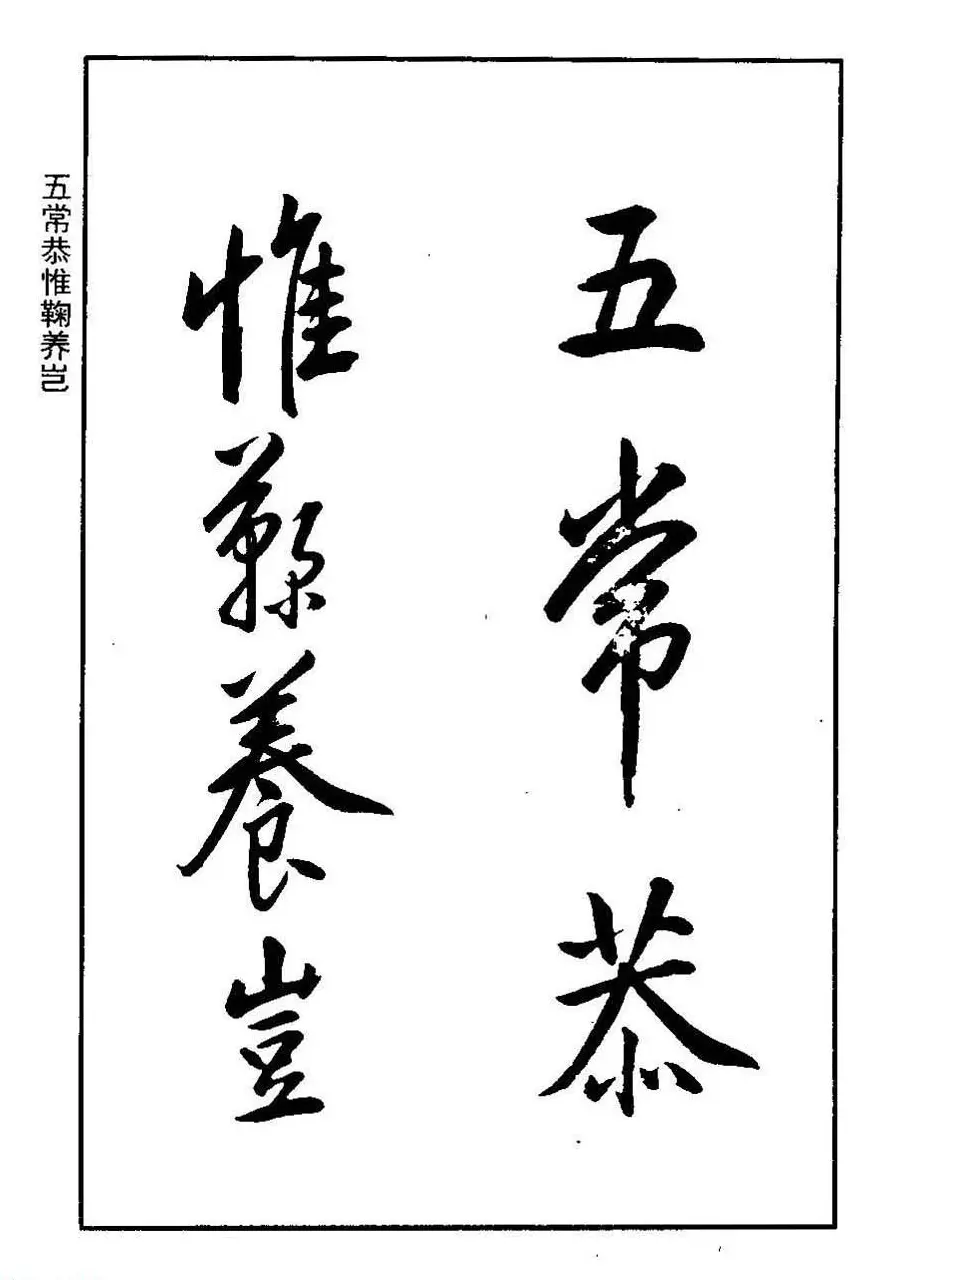 五常恭
惟鞠養豈
五常恭惟鞠养岂